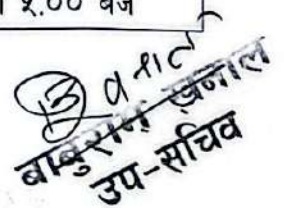 २.०० बजे
बाबुराम खनाल
उप-सचिव